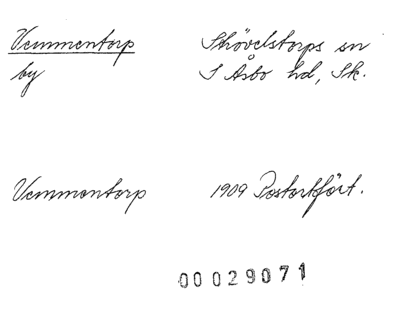 Vemmentorp Skövelstorps sn
by S Åsbo hd, Sk.
Vemmentorp 1909 Postortsfört.
00029071